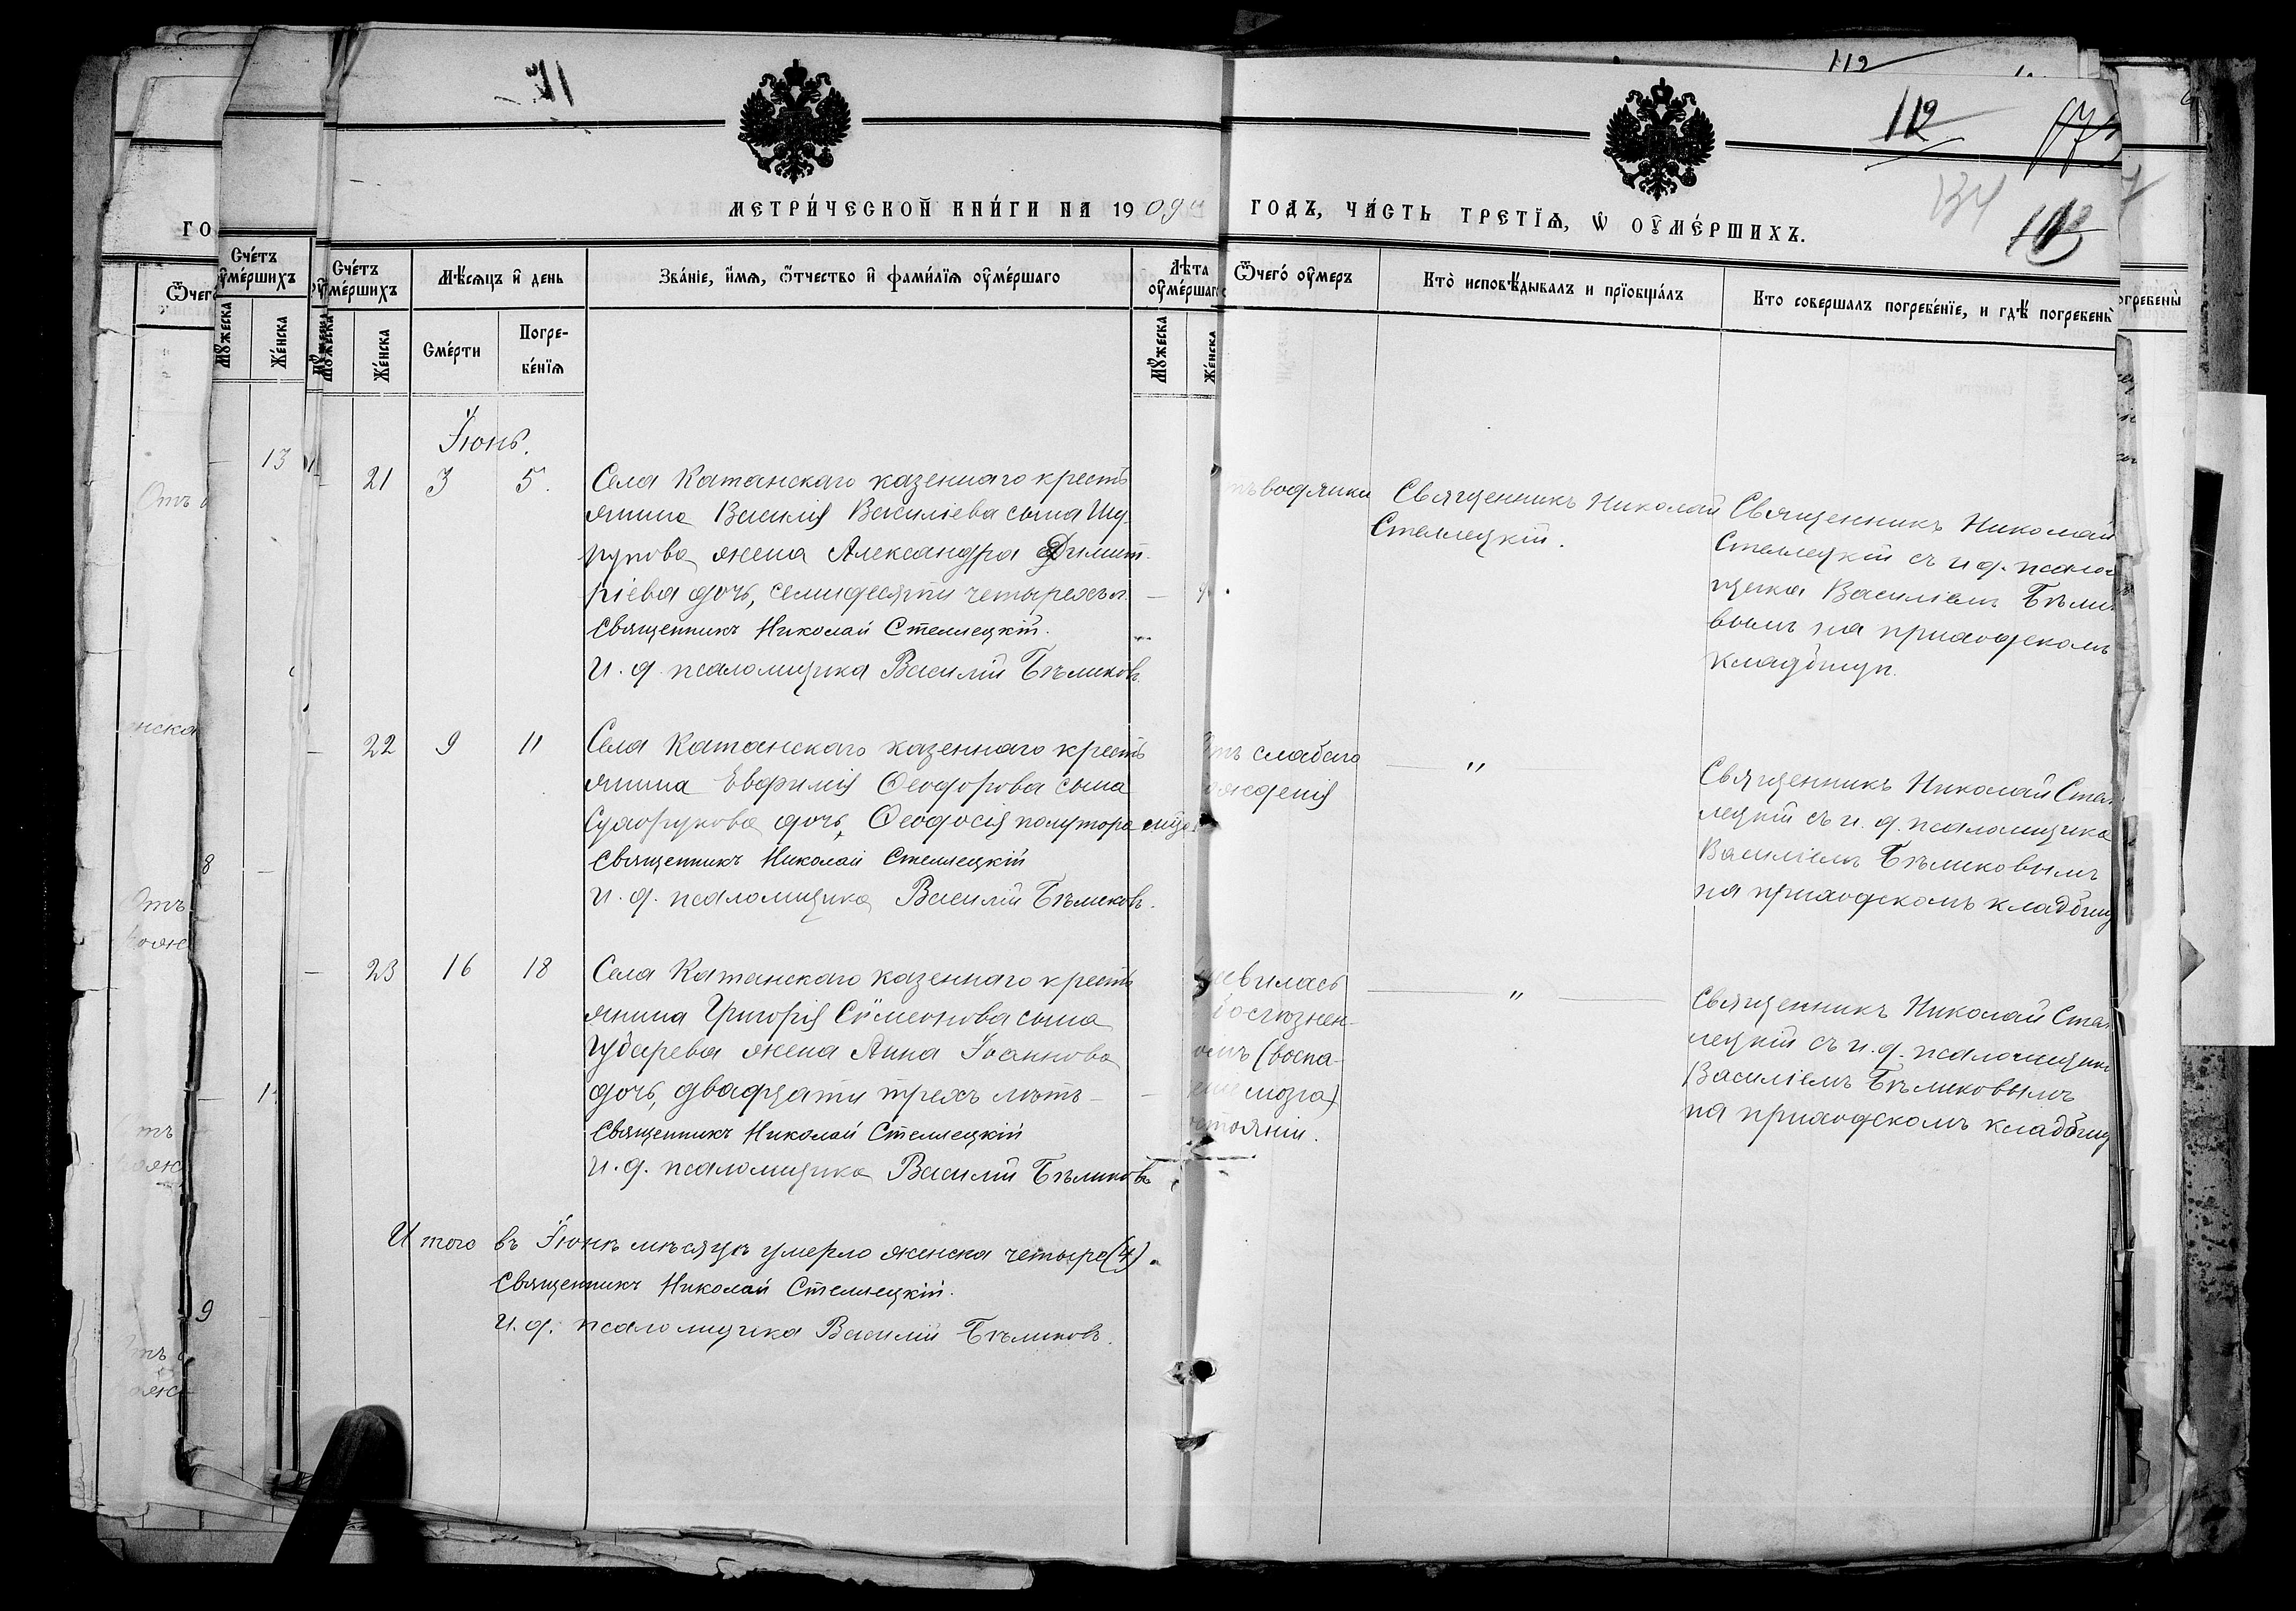 71
112
112
134
МЕТРИ́ЧЕСКОЙ КНИ́ГИ НА 1909й
ГОДЪ, ЧА́СТЬ ТРЕТІѦ, Ѡ ОУМЕ́РШИХЪ.
Сче́тъ оуме́ршихъ
Мѣ́сѧцъ и҆ день
Зва́ніе, и҆́мѧ, ѻ҆́тчество и҆ фами́лїѧ оуме́ршаго
Лѣта оуме́ршаго
Ѿчегѡ́ оу́меръ
Кто̀ исповѣ́дывалъ и прїобща́лъ
Кто совершалъ погребе́нїе, и гдѣ̀ погребены̀
Мꙋ́жеска
Же́нска
Сме́рти
Погре-
бе́нїѧ
Мꙋ́жеска
Же́нска
Іюнь.
21 3 5.
Села Катанскаго казеннаго кресть
янина Василія Василіева сына
жена Александра Димит
ріева дочь, семидесяти четырехъ л.
Священникъ Николай Стеллецкій.
И. д. псаломщика Василій Бѣликовъ.
водянки
Священникъ Николай
Стеллецкій.
Священникъ Николай
Стеллецкій съ и д. псалом
щика Василіемъ Бѣлико
вымъ на приходскомъ
кладбищѣ.
22 9 11
Села Катанскаго казеннаго кресть
янина Евфимія Ѳеодорова сына
Сухорукова дочь, Ѳеодосія полутора мѣс.
Священникъ Николай Стеллецкій
И. д. псаломщика Василій Бѣликовъ.
отъ слабаго
рожденія
— " —
Священникъ Николай Стел
лецкій съ и. д. псаломщика
Василіемъ Бѣликовымъ
на приходскомъ кладбищ
23 16 18
Села Катанскаго казеннаго кресть
янина Григорія Сѵмеонова сына
Губарева жена Анна Іоаннова
дочь, двадцати трехъ лѣтъ —
Священникъ Николай Стеллецкій
И. д. псаломщика Василій Бѣликовъ
(воспа-
мозга)
стояніи.
— " —
Священникъ Николай Стел
лецкій съ и. д. псаломщика
Василіемъ Бѣликовымъ
на приходскомъ кладбищ
Итого въ Іюнѣ мѣсяцѣ умерло женска четыре (4).
Священникъ Николай Стеллецкій.
И. д. псаломщика Василій Бѣликовъ.